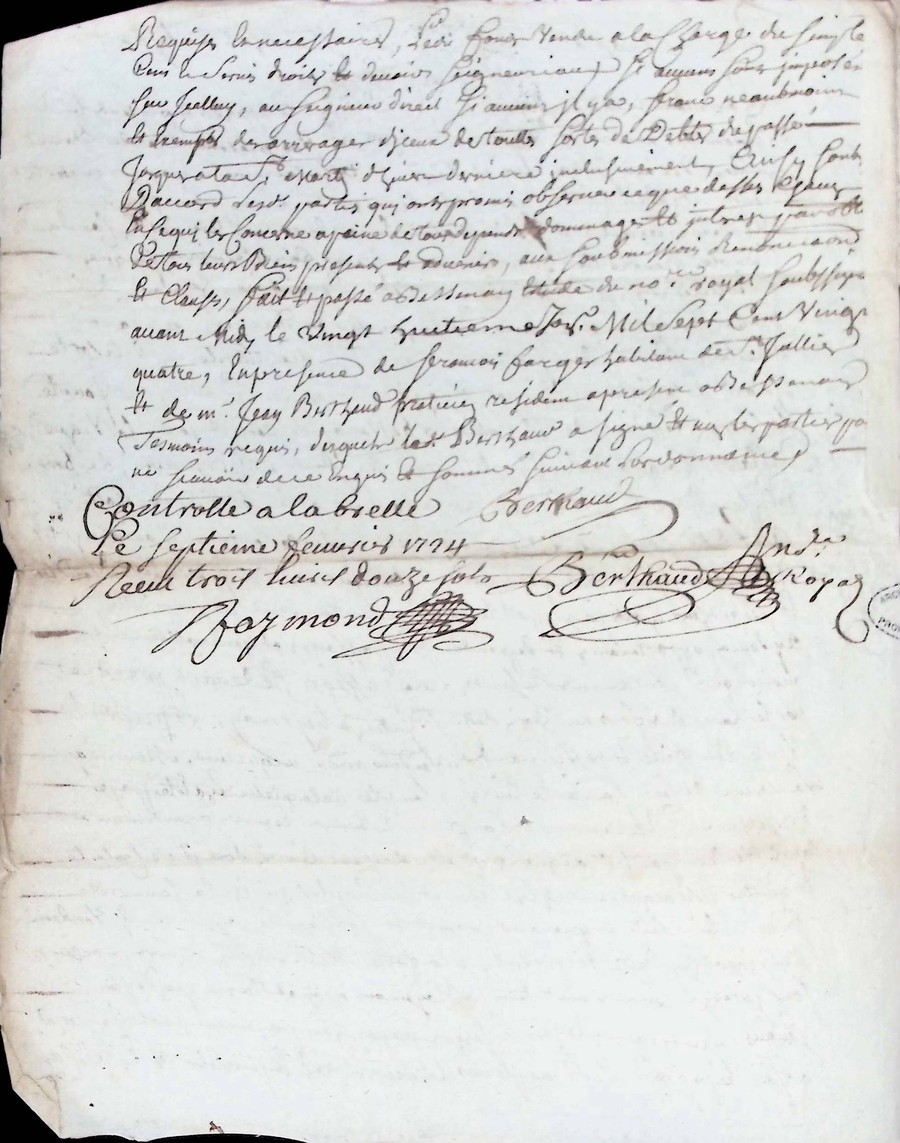 Requises & necessaires, Ledi fonds Vendu a la Charge du simple
Cens & Servis droits & devoirs seigneuriaux Si aucuns sont imposés
sur Icelluy, au seigneur direct Si aucun il y a, franc neanbmoins
& exempt des arrerages d'Iceux & de touttes sortes de Debtes du passé
Jusques a la St marti d'hiver derniere inclusivement, Ainsy
D'accord lesd. parties qui ont promis observer ce que dessus Chacun
En ce qui les Concerne a peine de tous depends dommages & interest
De tous leurs Biens presents & advenirs, aux soubmissions Renonciaons
& Clauses, fait & passé a Etude du no.re royal soubssigné
avant Midy le Vingt huitieme Jer. Mil Sept Cent Vingt
quatre, En presence de francois farges habitant de St. Jallier
& de mr. Jean Berthaud praticien resident a present a
Tesmoins requis, desquels led. Berthaud a signé & non les parties po
ne scavoir de ce Enquis & sommés suivant l'ordonnance
Controlle a la brelle Berthaud
Le septieme feuvrier 1724
Receu trois livres douze sols Berthaud No.re Royal
Raymond